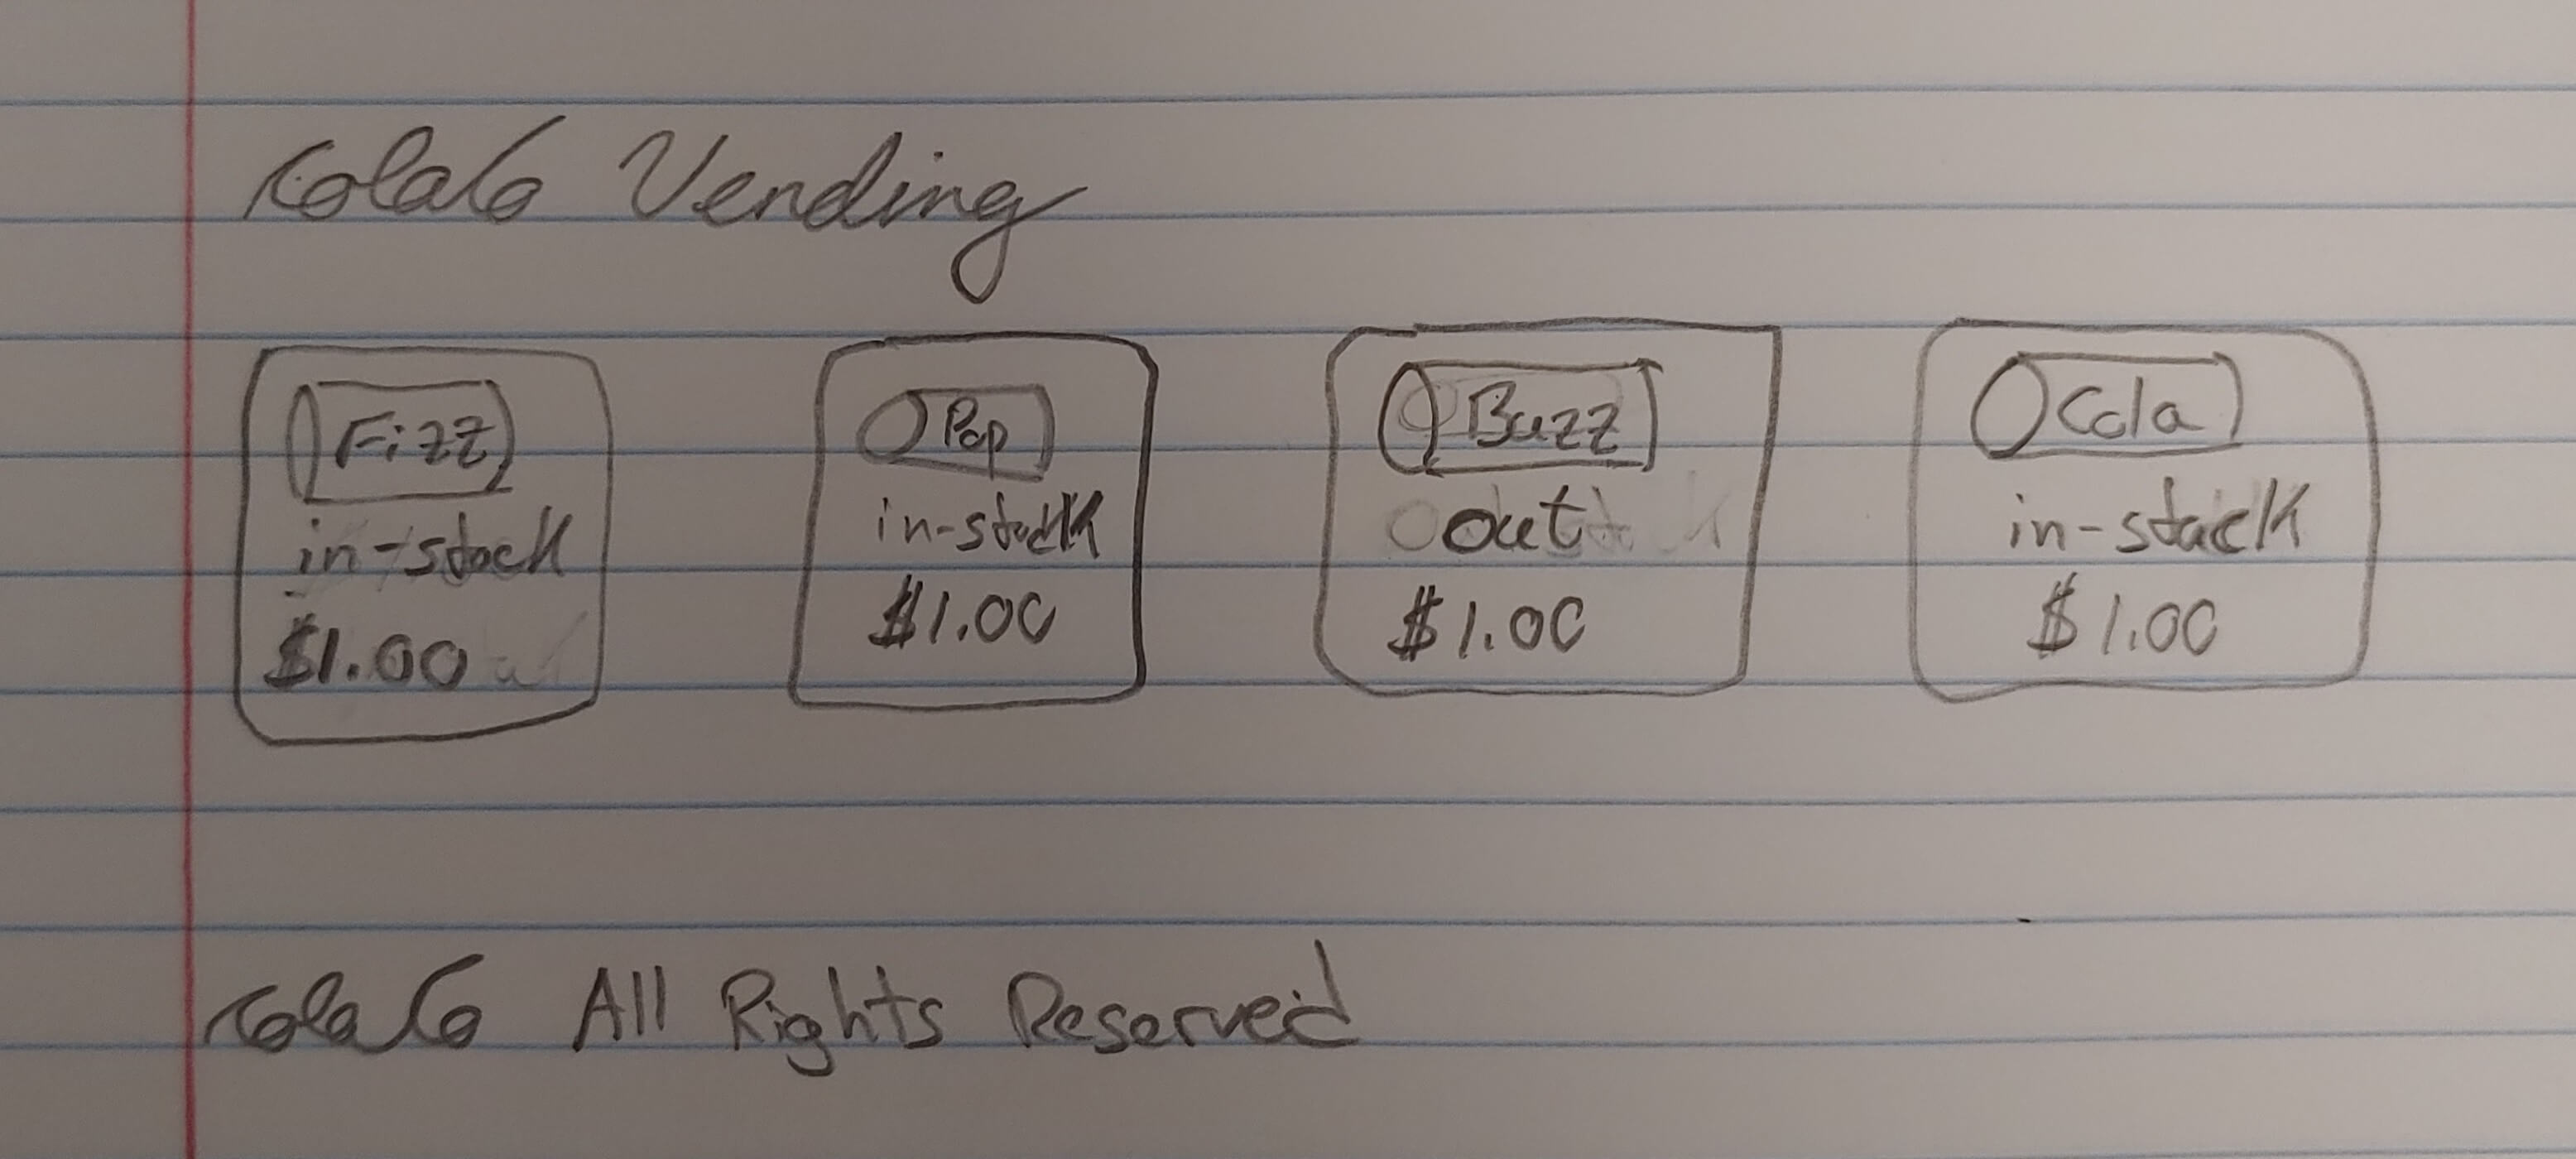 ColaCo Vending
Fizz
in-stock
$1.00
Pop
in-stock
$1.00
Buzz
out
$1.00
Cola
in-stock
$1.00
ColaCo All Rights Reserved